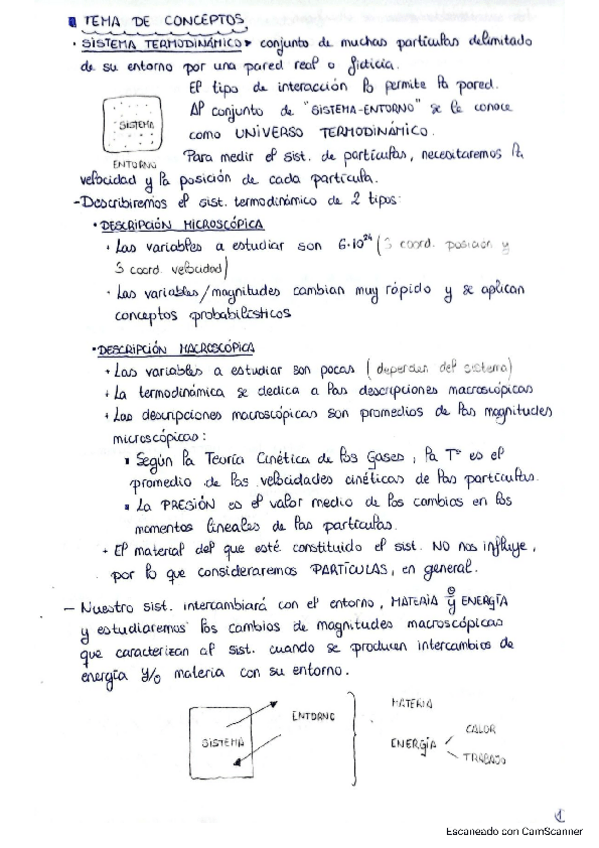 TEMA DE CONCEPTOS
· SISTEMA TERMODINÁMICO → conjunto de muchas partículas delimitado
de su entorno por una pared real o ficticia.
El tipo de interacción lo permite la pared.
Al conjunto de "SISTEMA-ENTORNO" se le conoce
como UNIVERSO TERMODINÁMICO.
SISTEMA
ENTORNO
Para medir el sist. de partículas, necesitaremos la
velocidad y la posición de cada partícula.
- Describiremos el sist. termodinámico de 2 tipos:
• DESCRIPCIÓN MICROSCÓPICA
· Las variables a estudiar son 6·10²⁴ (3 coord. posición y
3 coord. velocidad)
· Las variables/magnitudes cambian muy rápido y se aplican
conceptos probabilísticos
• DESCRIPCIÓN MACROSCÓPICA
+ Las variables a estudiar son pocas (dependen del sistema)
+ La termodinámica se dedica a las descripciones macroscópicas
+ Las descripciones macroscópicas son promedios de las magnitudes
microscópicas:
▪ Según la Teoría Cinética de los Gases, la Tª es el
promedio de las velocidades cinéticas de las partículas.
▪ La PRESIÓN es el valor medio de los cambios en los
momentos lineales de las partículas.
+ El material del que esté constituido el sist. NO nos influye,
por lo que consideraremos PARTÍCULAS, en general.
- Nuestro sist. intercambiará con el entorno, MATERIA y ENERGÍA
y estudiaremos los cambios de magnitudes macroscópicas
que caracterizan al sist. cuando se producen intercambios de
energía y/o materia con su entorno.
SISTEMA
ENTORNO
MATERIA
ENERGÍA
CALOR
TRABAJO
1
Escaneado con CamScanner